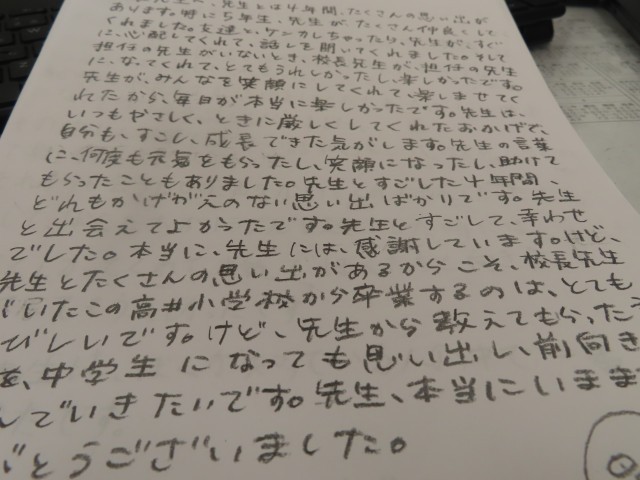 先生とは4年間、たくさんの思い出が
あります。特に5年生、先生が、たくさん仲良くして
くれました。友達と、ケンカしちゃったり、先生が、すぐ
に、心配してくれて、話しを聞いてくれました。そして
担任の先生がいないとき、校長先生が、担任の先生
に、なってくれて、とてもうれしかったし、楽しかったです。
先生が、みんなを笑顔にしてくれて、楽しませてく
れたから、毎日が本当に楽しかったです。先生は、
いつもやさしく、ときに厳しくしてくれたおかげで、
自分も、すこし、成長できた気がします。先生の言葉
に、何度も元気をもらったし、笑顔になったし、助けて
もらったこともありました。先生とすごした4年間、
どれもかけがえのない思い出ばかりです。先生
と出会えてよかったです。先生とすごして、幸わせ
でした。本当に、先生には、感謝しています。けど、
先生とたくさんの思い出があるからこそ、校長先生
がいたこの高井小学校から卒業するのは、とても
びしいです。けど、先生から教えてもらった
、中学生になっても思い出し、前向き
していきたいです。先生、本当にいまま
がとうございました。